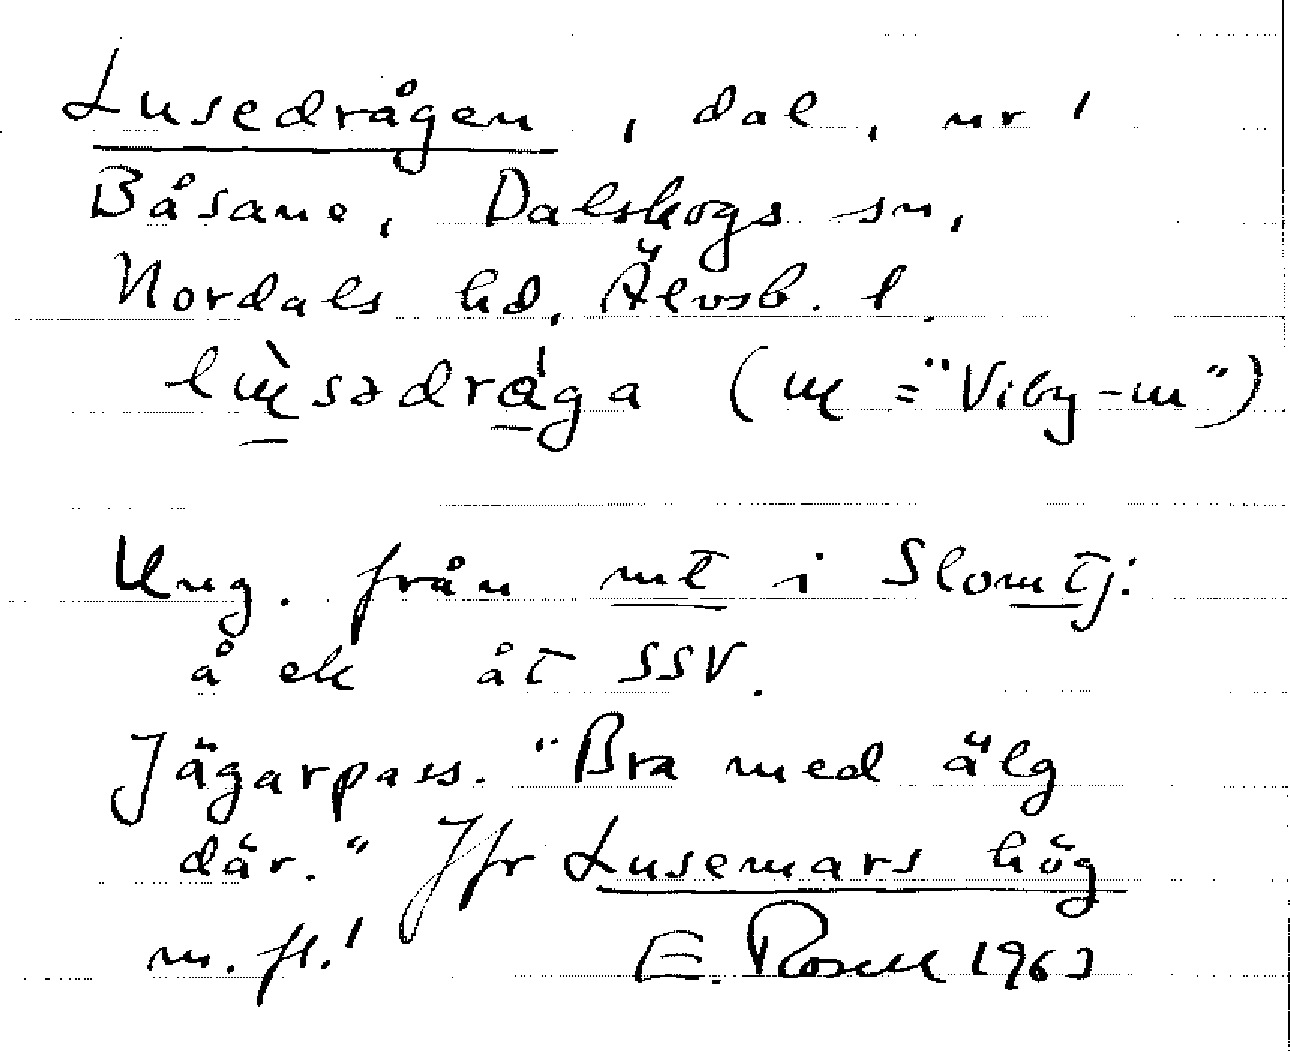 Lusedrågen, dal, nr 1
Båsane, Dalskogs sn,
Nordals hd, Älvsb. l.
lɯ̀sədrága (ɯ = "Viby-ɯ")
Ung. från mt i Slomtj:
å ek åt SSV.
Jägarpass. "Bra med älg
där." Jfr Lusemars hög
m.fl.! E. Rosell 1963